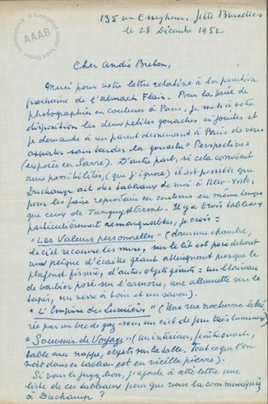 135 rue Esseghem, Jette Bruxelles
le 28 Décembre 1952
AAAB
Cher André Breton,
Merci pour votre lettre relative à la parution
prochaine de l'almach Flair. Pour la prise de
photographies en couleurs à Paris, je mets à votre
disposition les deux petites gouaches ci jointes et
je demande à un parent demeurant à Paris de vous
apporter sans tarder la gouache "Perspectives"
(exposée en Sarre). D'autre part, si cela convient
aux possibilités, (que j'ignore) il est possible que
Duchamp ait des tableaux de moi à New-York,
pour les faire reproduire en couleurs en même temps
que ceux de Tanguy et Ernst. Il y a trois tableaux
particulièrement remarquables, je crois :
"Les Valeurs personnelles" (dans une chambre,
le ciel recouvre les murs, sur le lit est posé debout
un peigne d'écaille géant atteignant presque le
plafond, d'autres objets géants : un blaireau
de barbier posé sur l'armoire, une allumette sur le
tapis, un verre à boire et un savon).
"L'Empire des Lumières" (Une rue nocturne éclai-
rée par un bec de gaz sous un ciel de jour très lumineux)
"Souvenir de Voyage" (un intérieur, fenêtre ouverte,
table avec nappe, objets sur la table, tout ce que l'on
voit dans ce tableau est en vieille pierre).
Si vous le jugez bon, j'ajoute à cette lettre une
liste de ces tableaux pour que vous la communiquiez
à Duchamp ?